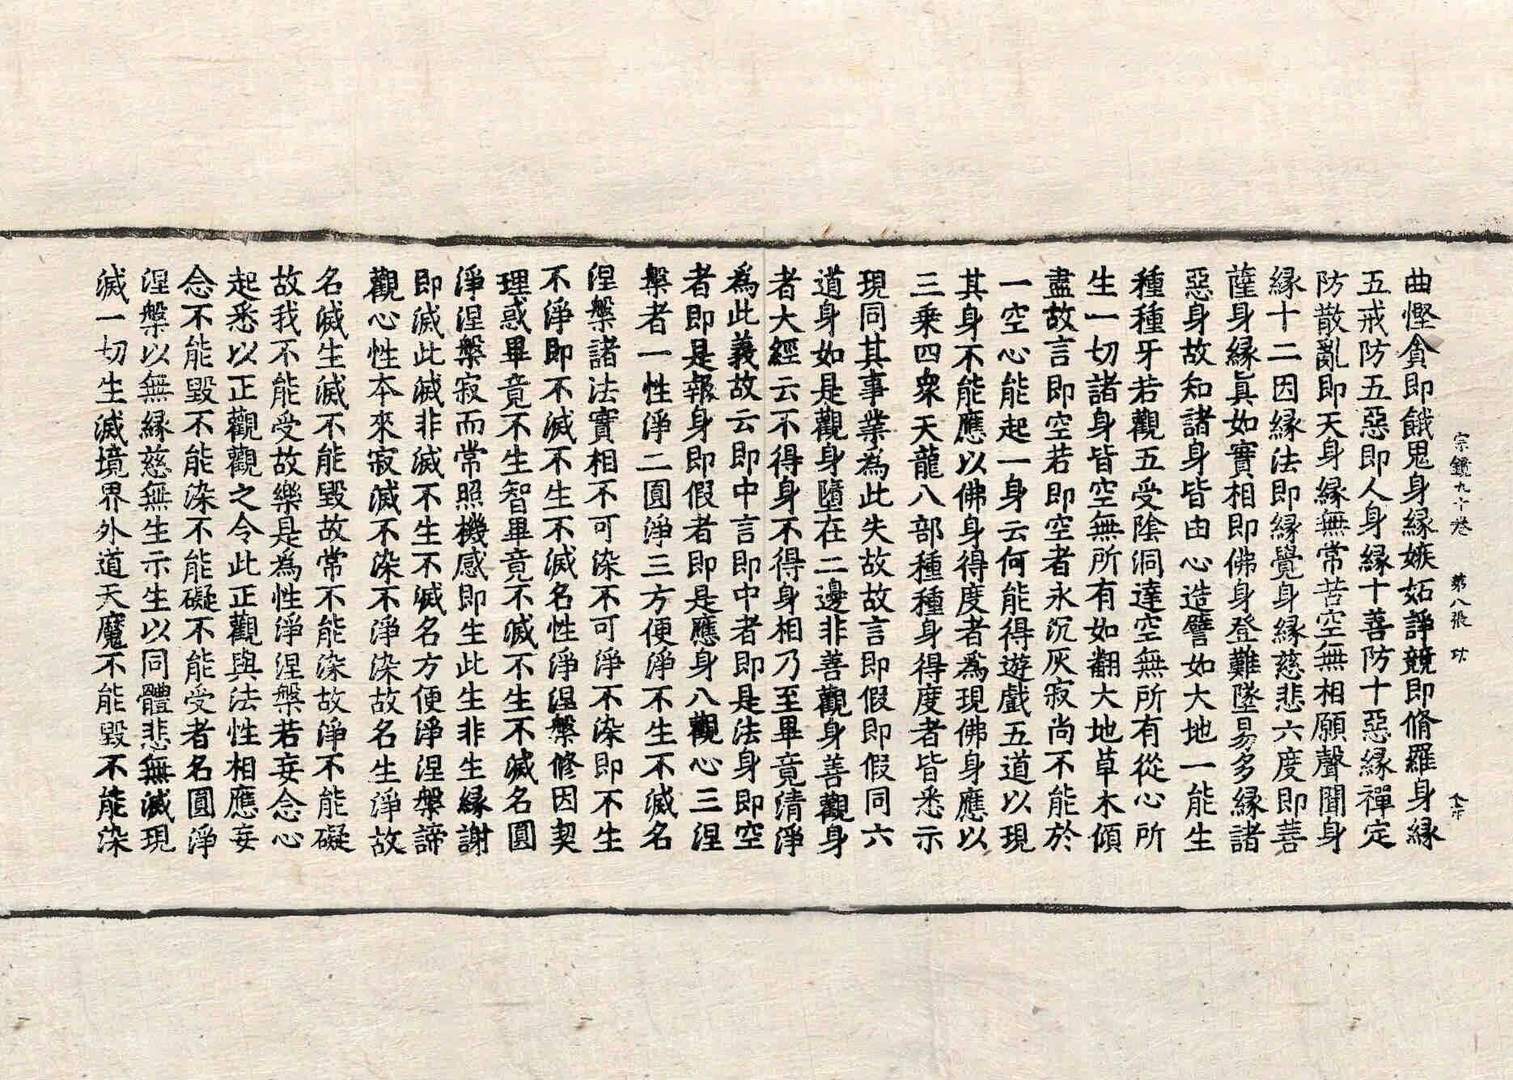 宗鏡九十卷 第八張
曲慳貪即餓鬼身縁嫉妬諍競即脩羅身縁
五戒防五惡即人身縁十善防十惡縁禪定
防散亂即天身縁無常苦空無相願聲聞身
縁十二因縁法即縁覺身縁慈悲六度即菩
薩身縁眞如實相即佛身登難墜易多縁諸
惡身故知諸身皆由心造譬如大地一能生
種種牙若觀五受陰洞達空無所有從心所
生一切諸身皆空無所有如翻大地草木傾
盡故言即空若即空者永沉灰寂尚不能於
一空心能起一身云何能得遊戲五道以現
其身不能應以佛身得度者為現佛身應以
三乘四衆天龍八部種種身得度者皆悉示
現同其事業為此失故故言即假即假同六
道身如是觀身墮在二邊非善觀身善觀身
者大經云不得身不得身相乃至畢竟清淨
為此義故云即中言即中者即是法身即空
者即是報身即假者即是應身八觀心三涅
槃者一性淨二圓淨三方便淨不生不滅名
涅槃諸法實相不可染不可淨不染即不生
不淨即不滅不生不滅名性淨涅槃修因契
理惑畢竟不生智畢竟不滅不生不滅名圓
淨涅槃寂而常照機感即生此生非生縁謝
即滅此滅非滅不生不滅名方便淨涅槃諦
觀心性本來寂滅不染不淨染故名生淨故
名滅生滅不能毀故常不能染故淨不能礙
故我不能受故樂是為性淨涅槃若妄念心
起悉以正觀觀之令此正觀與法性相應妄
念不能毀不能染不能礙不能受者名圓淨
涅槃以無縁慈無生示生以同體悲無滅現
滅一切生滅境界外道天魔不能毀不能染